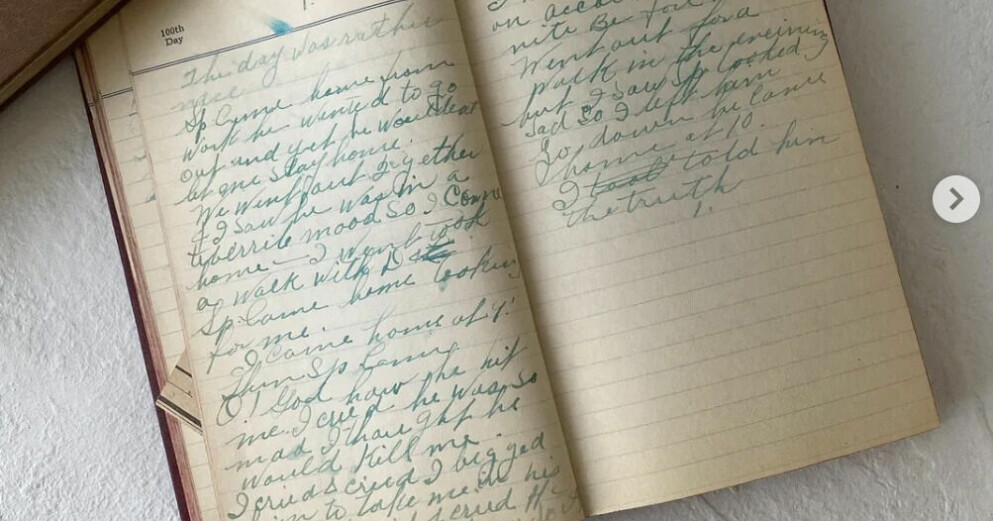 100th
Day
The day was rather
nice
Sp. Came home from
work he wented to go
out and yet he wouldent
let me stay home.
We went out together
I saw he was in a
teberrile mood so I Come
home — I went took
a walk with D
Sp. Came home looking
for me.
I came home at 4:
Then Sp Came
O! God how he hit
me I cried he was so
mad I thaught he
would kill me
I cried & cried I begged
him to take me in his
cried
on accou
nite Be for
Went out for a
walk in the evening
but I saw Sp looked
sad So I left him
So down he came
home at 10
I told him
the truth